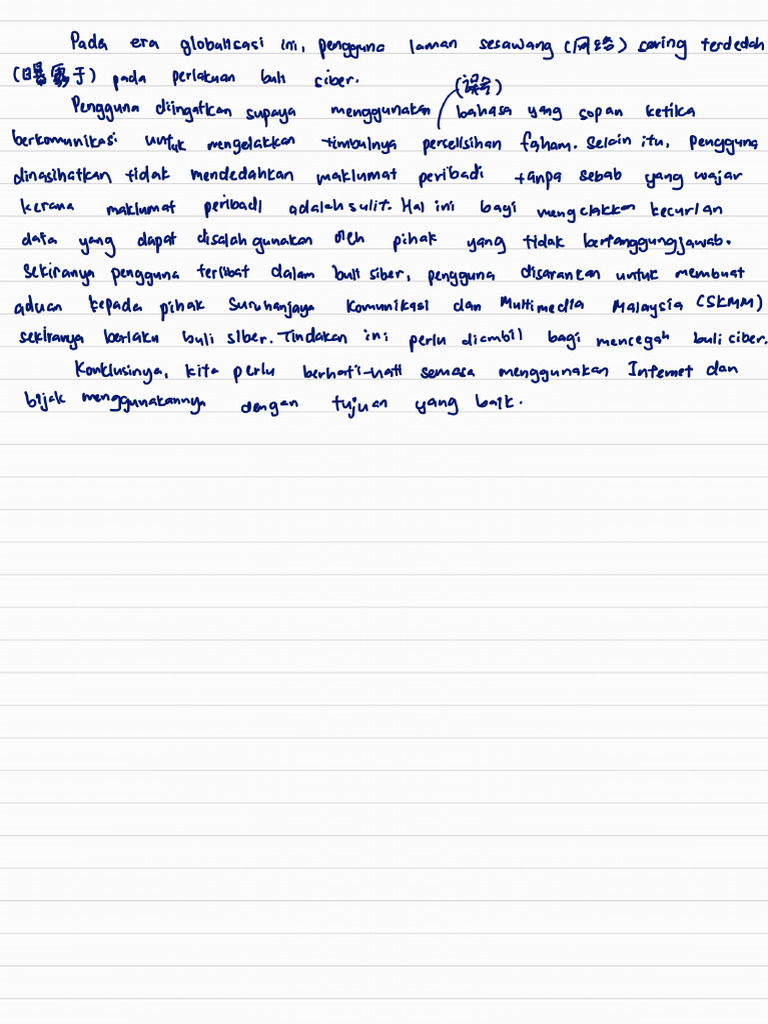 Pada era globalisasi ini, pengguna laman sesawang (网络) sering terdedah
(曝露于) pada perlakuan buli siber.
(误会)
Pengguna diingatkan supaya menggunakan bahasa yang sopan ketika
berkomunikasi untuk mengelakkan timbulnya perselisihan faham. Selain itu, pengguna
dinasihatkan tidak mendedahkan maklumat peribadi tanpa sebab yang wajar
kerana maklumat peribadi adalah sulit. Hal ini bagi mengelakkan kecurian
data yang dapat disalah gunakan oleh pihak yang tidak bertanggungjawab.
Sekiranya pengguna terlibat dalam buli siber, pengguna disarankan untuk membuat
aduan kepada pihak Suruhanjaya Komunikasi dan Multimedia Malaysia (SKMM)
sekiranya berlaku buli siber. Tindakan ini perlu diambil bagi mencegah buli ciber.
Konklusinya, kita perlu berhati-hati semasa menggunakan Internet dan
bijak menggunakannya dengan tujuan yang baik.